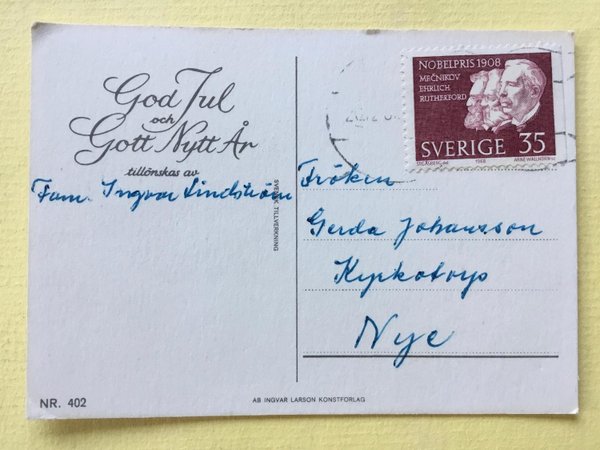 God Jul
och
Gott Nytt År
tillönskas av
Fam. Ingvar Lindström
NR. 402
SVENSK TILLVERKNING
AB INGVAR LARSON KONSTFORLAG
NOBELPRIS 1908
MEČNIKOV
EHRLICH
RUTHERFORD
SVERIGE 35
1968
Fröken
Gerda Johansson
Kyrkotorp
Nye